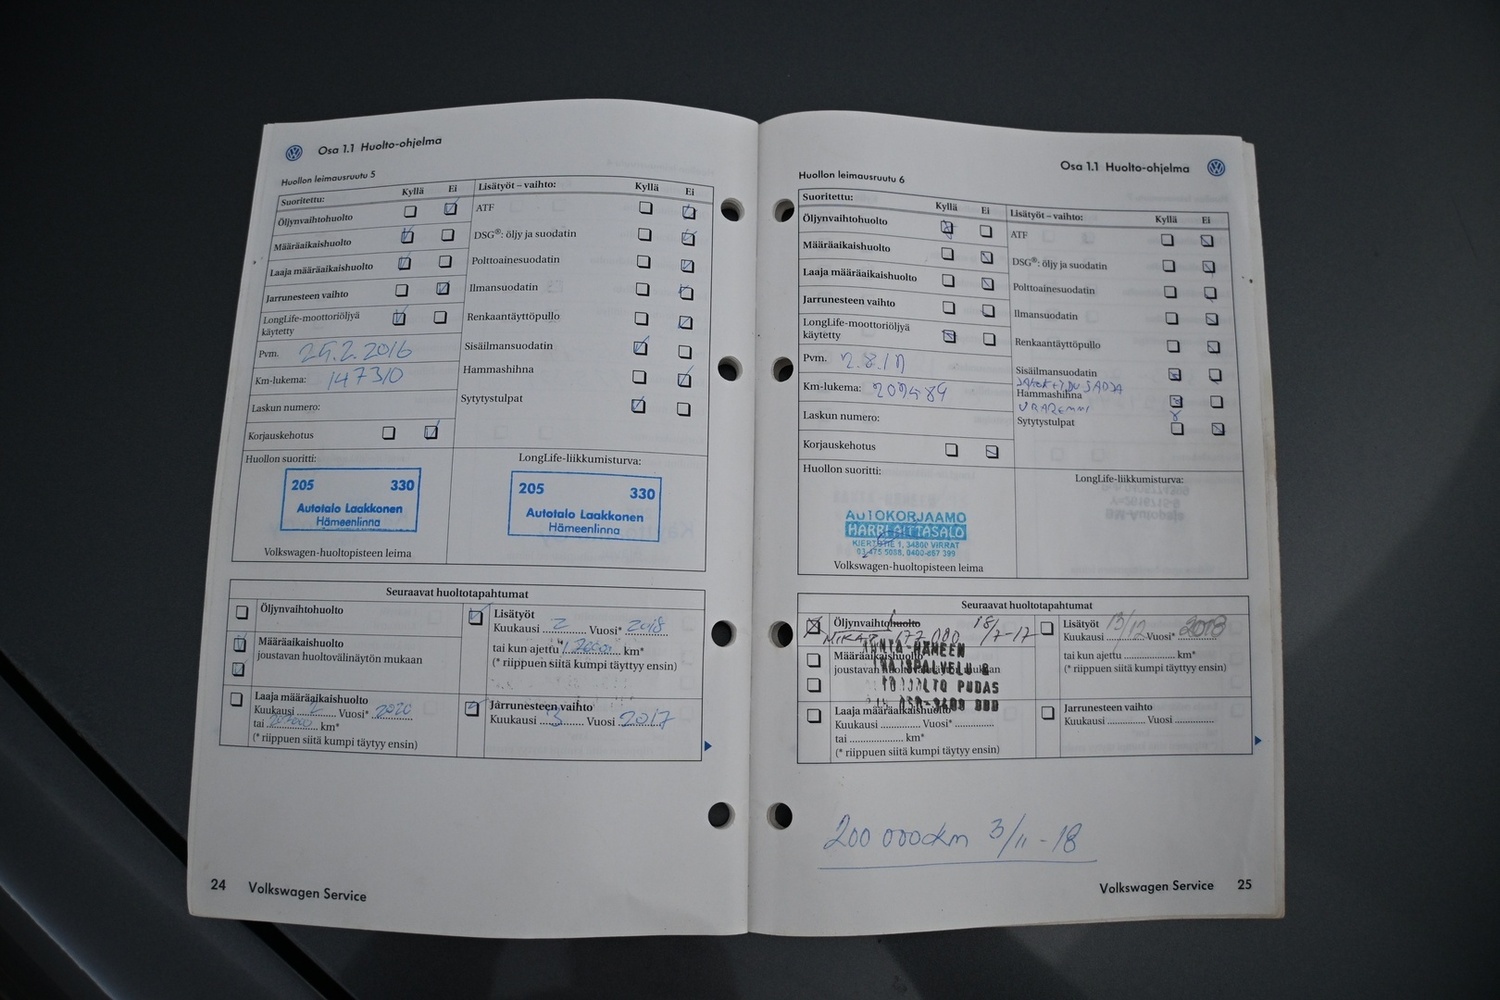 Osa 1.1 Huolto-ohjelma
Huollon leimausruutu 5
Suoritettu: Kyllä Ei
Öljynvaihtohuolto
Määräaikaishuolto
Laaja määräaikaishuolto
Jarrunesteen vaihto
LongLife-moottoriöljyä
käytetty
Pvm. 25.2.2016
Km-lukema: 147310
Laskun numero:
Korjauskehotus
Lisätyöt – vaihto: Kyllä Ei
ATF
DSG®: öljy ja suodatin
Polttoainesuodatin
Ilmansuodatin
Renkaantäyttöpullo
Sisäilmansuodatin
Hammashihna
Sytytystulpat
Huollon suoritti:
205 330
Autotalo Laakkonen
Hämeenlinna
Volkswagen-huoltopisteen leima
LongLife-liikkumisturva:
205 330
Autotalo Laakkonen
Hämeenlinna
Seuraavat huoltotapahtumat
Öljynvaihtohuolto
Määräaikaishuolto
joustavan huoltovälinäytön mukaan
Laaja määräaikaishuolto
Kuukausi 2 Vuosi* 2020
tai km*
(* riippuen siitä kumpi täytyy ensin)
Lisätyöt
Kuukausi 2 Vuosi* 2018
tai kun ajettu km*
(* riippuen siitä kumpi täyttyy ensin)
Jarrunesteen vaihto
Kuukausi 3 Vuosi 2017
24 Volkswagen Service
Osa 1.1 Huolto-ohjelma
Huollon leimausruutu 6
Suoritettu: Kyllä Ei
Öljynvaihtohuolto
Määräaikaishuolto
Laaja määräaikaishuolto
Jarrunesteen vaihto
LongLife-moottoriöljyä
käytetty
Pvm.
Km-lukema:
Laskun numero:
Korjauskehotus
Lisätyöt – vaihto: Kyllä Ei
ATF
DSG®: öljy ja suodatin
Polttoainesuodatin
Ilmansuodatin
Renkaantäyttöpullo
Sisäilmansuodatin
Hammashihna
Sytytystulpat
Huollon suoritti:
AUTOKORJAAMO
HARRI AITTASALO
34800 VIRRAT
Volkswagen-huoltopisteen leima
LongLife-liikkumisturva:
Seuraavat huoltotapahtumat
Öljynvaihtohuolto 18/7-17
177 000
Määräaikaishuolto
joustavan huoltovälinäytön mukaan
PUDAS
Laaja määräaikaishuolto
Kuukausi Vuosi*
tai km*
(* riippuen siitä kumpi täytyy ensin)
Lisätyöt
Kuukausi 13/12 Vuosi* 2018
tai kun ajettu km*
(* riippuen siitä kumpi täyttyy ensin)
Jarrunesteen vaihto
Kuukausi Vuosi
200 000km 3/11-18
Volkswagen Service 25